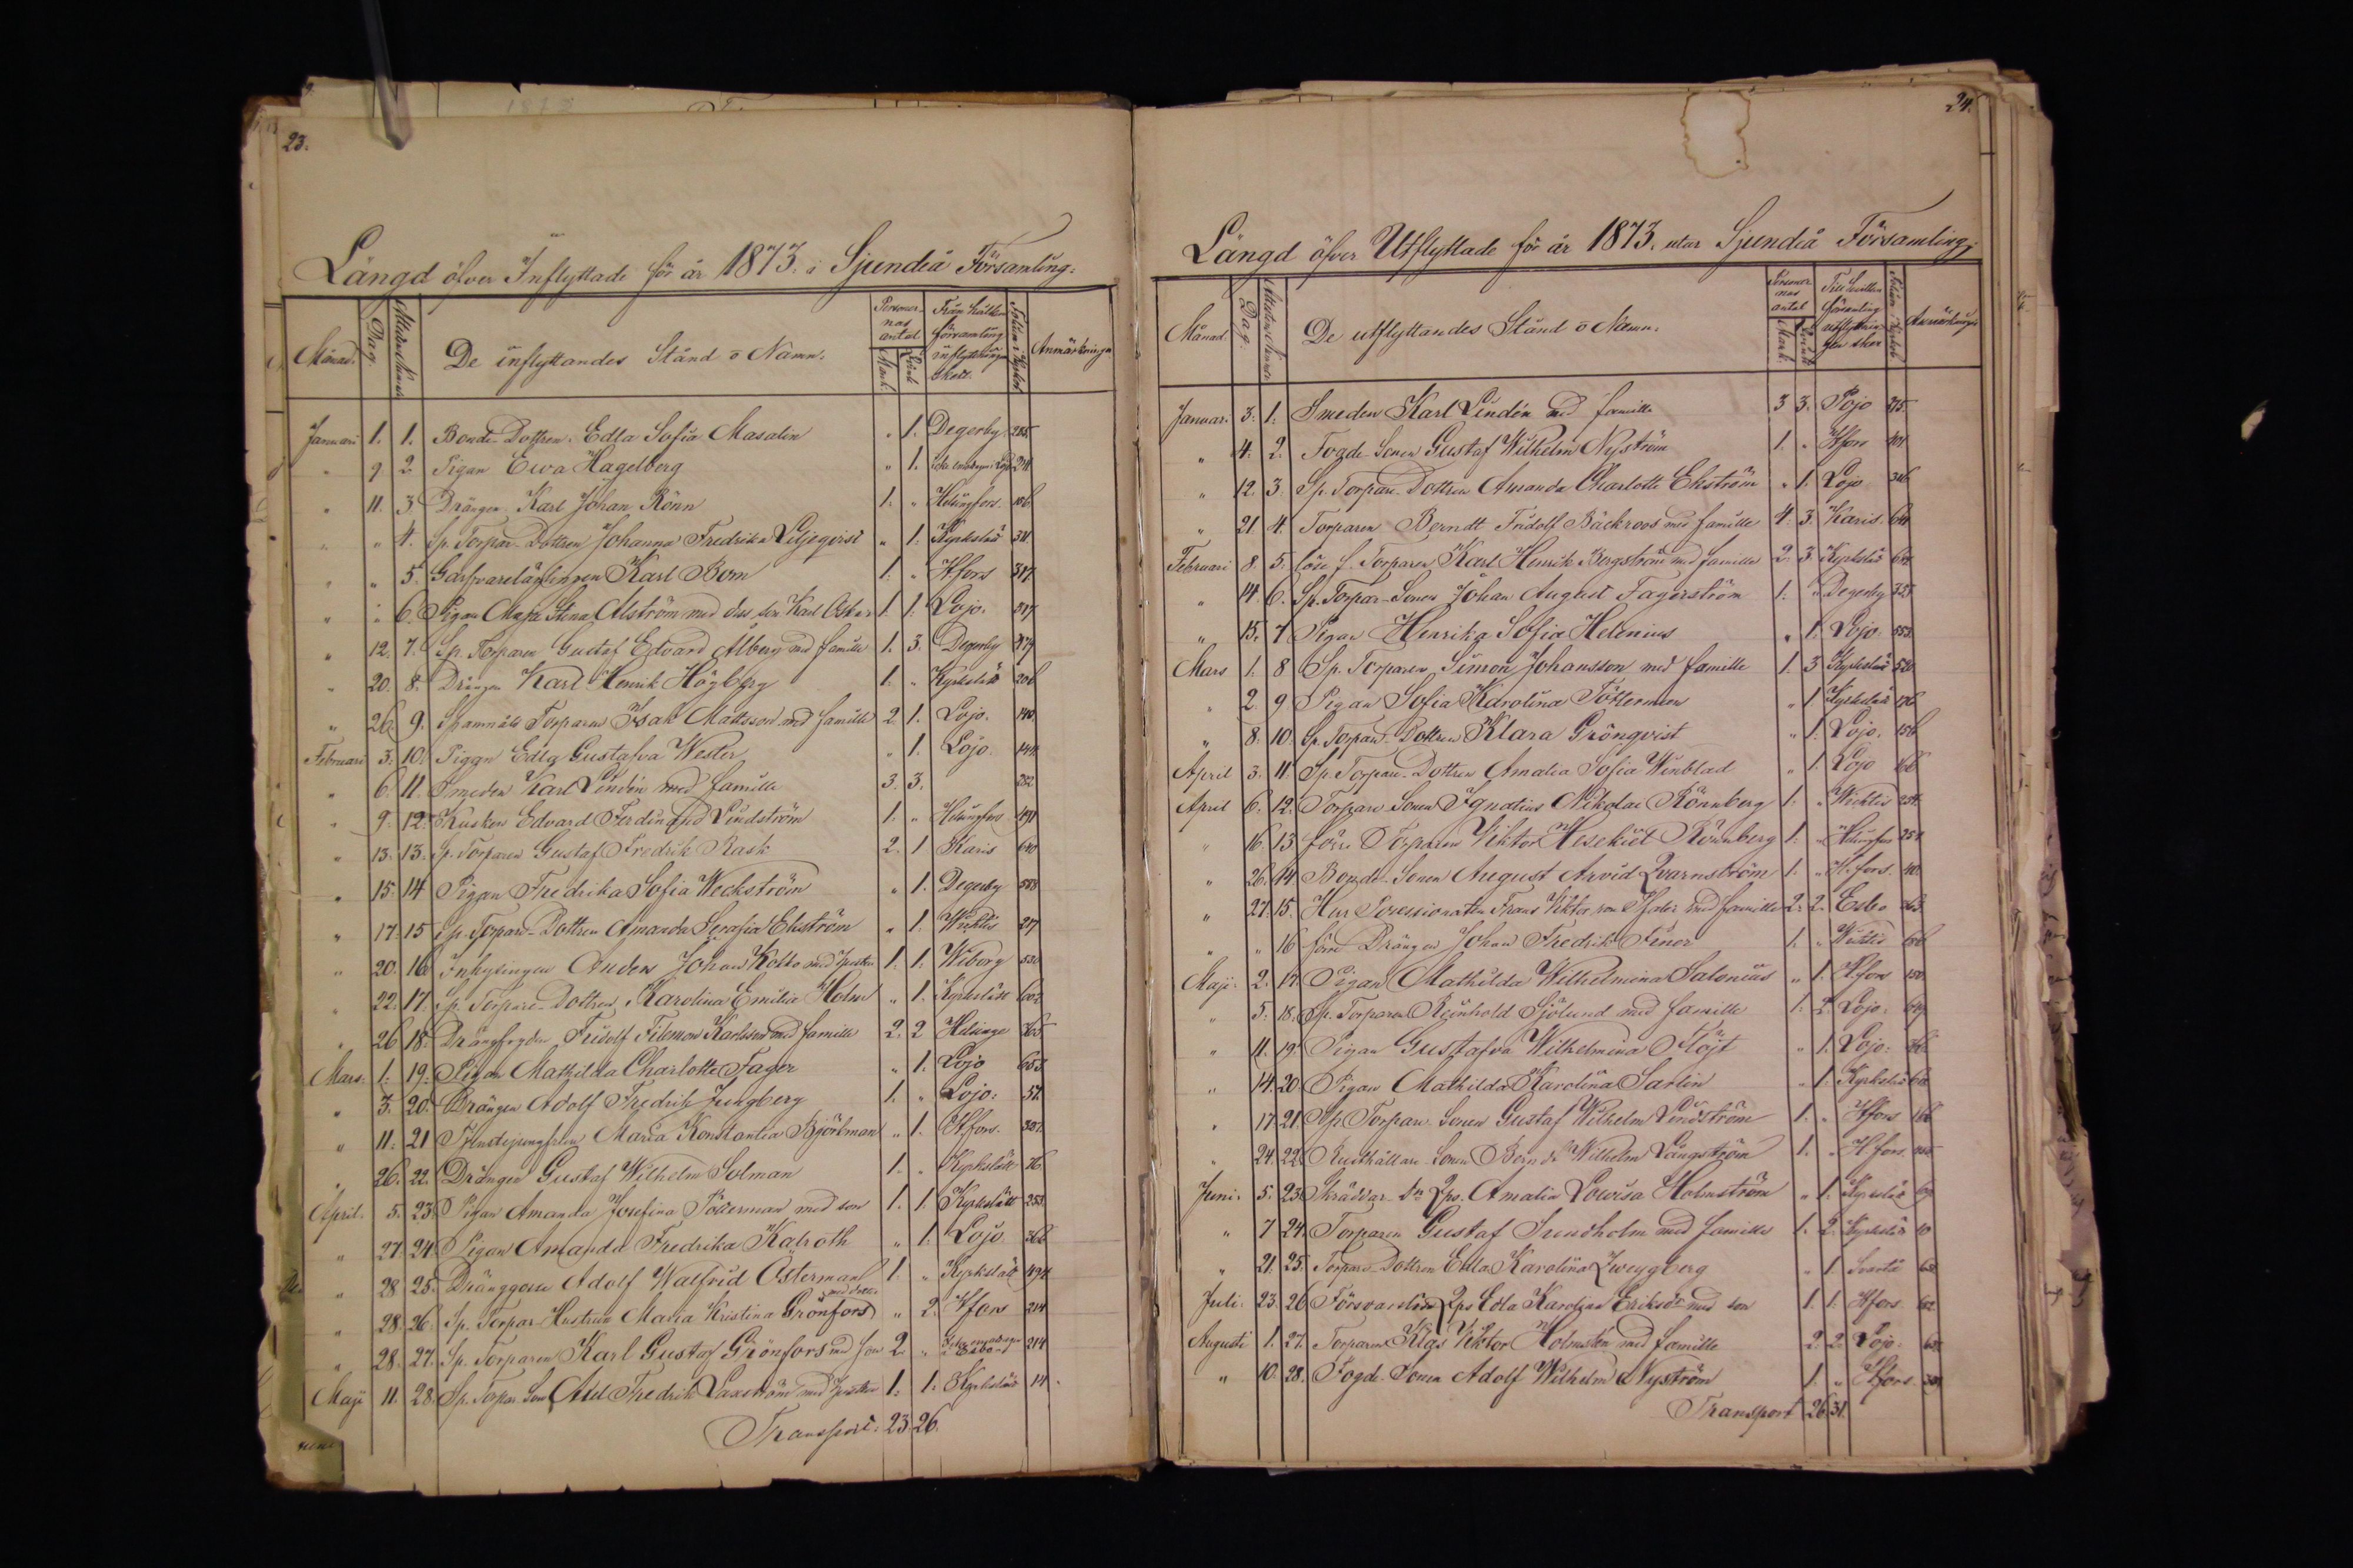 23.
Längd öfver Inflyttade för år 1873. i Sjundeå Församling:
Månad. Dag. De inflyttandes Stånd o Namn. Personernas antal Mank. Qvink. Från hvilken församling inflyttningen skett. Anmärkningar
Januari 1. 1. Bonde-Dottren Edla Sofia Masalin " 1. Degerby 285.
" 9 2 Pigan Ewa Hagelberg " 1.
" 11. 3. Drängen Karl Johan Rönn 1. " Helsingfors. 106
" " 4. Sp. Torpar-Dottren Johanna Fredrika Liljeqvist " 1. Kyrkslätt 311
" " 5. Karl Bom 1. " Hfors 317
" " 6. Pigan Maja Stina Alström med dess son Karl Oskar 1. 1. Lojo. 317
" 12. 7. Sp. Torparen Gustaf Edvard Ålberg med familie 1. 3. Degerby
" 20. 8. Drängen Karl Henrik Högberg 1. " Kyrkslätt 206
" 26. 9. Torparen Isak Mattsson med familie 2. 1. Lojo. 140
Februari 3. 10. Pigan Edla Gustafva Wester " 1. Lojo. 144.
" 6. 11. Smeden Karl Lindén med familie 3. 3. 282
" 9. 12. Kusken Edvard Ferdinand Lindström 1. " Helsingfors 491
" 13. 13. Sp. Torparen Gustaf Fredrik Rask 2. 1 Karis 640
" 15. 14 Pigan Fredrika Sofia Weckström " 1. Degerby 588
" 17. 15 Sp. Torpare-Dottren Amanda Serafia Ekström " 1. Wichtis 217
" 20. 16 Inhysingen Anders Johan Kolto med hustru 1. 1. Wiborg 530
" 22. 17. Sp. Torpare-Dottren Karolina Emilia Holm " 1. Kyrkslätt 602.
" 26 18. Drängfogden Fridolf Filemon Karlsson med familie 2. 2 Helsinge 365
Mars. 1. 19. Pigan Mathilda Charlotta Fager " 1. Lojo 653
" 3. 20. Drängen Adolf Fredrik Jungberg 1. " Lojo. 51.
" 11. 21 Maria Konstantia Björkman " 1. Hfors. 301.
" 26. 22. Drängen Gustaf Wilhelm Solman 1. " Kyrkslätt 76
April. 5. 23. Pigan Amanda Josefina Pöllerman med son 1. 1. Kyrkslätt 253.
" 27. 24. Pigan Amanda Fredrika Kalroth " 1. Lojo 366
" 28 25. Adolf Walfrid Österman 1. " Kyrkslätt 494
" 28. 26. Sp. Torpar-Hustrun Maria Kristina Grönfors med dotter " 2. Hfors 214
" 28. 27. Sp. Torparen Karl Gustaf Grönfors med son 2. " 214
Maji 11. 28. Sp. Torpar-Son Axel Fredrik Laxström med hustru 1. 1. Kyrkslätt 14.
Transport: 23. 26.
24.
Längd öfver Utflyttade för år 1873. utur Sjundeå Församling:
Månad Dag. De utflyttandes Stånd o Namn. Personernas antal Mank. Qvink. Till hvilken församling utflyttningen sker Anmärkningar
Januari 3. 1. Smeden Karl Lindén med familie 3 3. Pojo 315.
" 4. 2. Fogde-Sonen Gustaf Wilhelm Nyström 1. " Hfors 401
" 12. 3. Sp. Torpare-Dottren Amanda Charlotte Ekström " 1. Lojo 306
" 21. 4. Torparen Berndt Fridolf Bäckroos med familie 4. 3. Karis. 614
Februari 8. 5. Torparen Karl Henrik Bergström med familie 2. 3. Kyrkslätt 614
" 14. 6. Sp. Torpar-Sonen Johan August Fagerström 1. " Degerby 325
" 15. 7 Pigan Henrika Sofia Helenius " 1. Lojo. 553.
Mars 1. 8 Sp. Torparen Simon Johansson med familie 1. 3 Kyrkslätt 520
" 2. 9 Pigan Sofia Karolina Töllerman " 1 Kyrkslätt 176
" 8. 10. Sp. Torpare-Dottren Klara Grönqvist " 1. Lojo. 156
April 3. 11. Sp. Torpare-Dottren Amalia Sofia Winblad " 1. Lojo 166
April 6. 12. Torpare-Sonen Ignatius Nikolai Rönnberg 1. " Wichtis 254.
" 16. 13 förre Torparen Viktor Hesekiel Rönnberg 1. " Helsingfors 254
" 26. 14 Bonde-Sonen August Arvid Qvarnström 1. " H.fors. 40.
" 27. 15. Herr Possessionaten Frans Viktor von med familie 2. 2. Esbo 263.
" " 16 förre Drängen Johan Fredrik Finer 1. " Wichtis 606
Maji. 2. 17. Pigan Mathilda Wilhelmina Salonius " 1. H.fors 150
" 5. 18. Sp. Torparen Reinhold Sjölund med familie 1. 2. Lojo. 649
" 11. 19. Pigan Gustafva Wilhelmina Flöjt " 1. Lojo. 36.
" 14. 20. Pigan Mathilda Karolina Sarlin " 1. Kyrkslätt
" 17. 21. Sp. Torpare-Sonen Gustaf Wilhelm Lindström 1. " Hfors 166
" 24. 22. Rusthållare-Sonen Berndt Wilhelm Långström 1. " H.fors.
Juni. 5. 23. Skräddar- Amalia Lowisa Holmström " 1. Kyrkslätt
" 7 24. Torparen Gustaf Sundholm med familie 1. 2. Kyrkslätt
" 21. 25. Torpare-Dottren Edla Karolina Zweygberg " 1. Svartå
Juli. 23. 26 Edla Karolina med son 1. 1. Hfors
Augusti 1. 27. Torparen Klas Viktor Holmstén med familie 2. 2. Lojo.
" 10. 28. Fogde-Sonen Adolf Wilhelm Nyström 1. " Hfors.
Transport 26. 31.